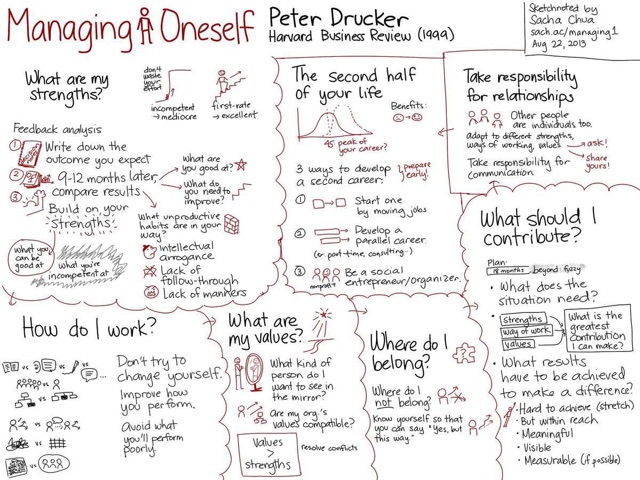 Managing Oneself
Peter Drucker
Harvard Business Review (1999)
Sketchnoted by
Sacha Chua
sach.ac/managing1
Aug 22, 2013
What are my
strengths?
don't
waste
your
effort
incompetent
→ mediocre
first-rate
→ excellent
Feedback analysis
1 Write down the
outcome you expect
2 9-12 months later,
compare results
3 Build on your
strengths
What are
you good at?
What do
you need to
improve?
What unproductive
habits are in your
way?
Intellectual
arrogance
Lack of
follow-through
Lack of manners
What you
can be
good at
What you're
incompetent at
How do I work?
vs vs vs ...
vs
vs
vs vs
vs
vs
Don't try to
change yourself.
Improve how
you perform.
Avoid what
you'll perform
poorly.
What are
my values?
What kind of
person do I
want to see in
the mirror?
Are my org.'s
values compatible?
Values
>
strengths
resolve conflicts
The second half
of your life
Benefits:
45 peak of
your career?
3 ways to develop
a second career:
prepare
early!
1 Start one
by moving jobs
2 Develop a
parallel career
(or part-time, consulting...)
3 Be a social
entrepreneur/organizer.
nonprofit
Where do I
belong?
Where do I
not belong?
Know yourself so that
you can say "Yes, but
this way."
Take responsibility
for relationships
Other people
are individuals too.
adapt to different strengths,
ways of working, values
→ ask!
Take responsibility for
communication.
→ share
yours!
What should I
contribute?
Plan:
18 months beyond: fuzzy
• What does the
situation need?
• strengths
way of work
values
What is the
greatest
contribution
I can make?
• What results
have to be achieved
to make a difference?
• Hard to achieve (stretch)
• But within reach
• Meaningful
• Visible
• Measurable (if possible)